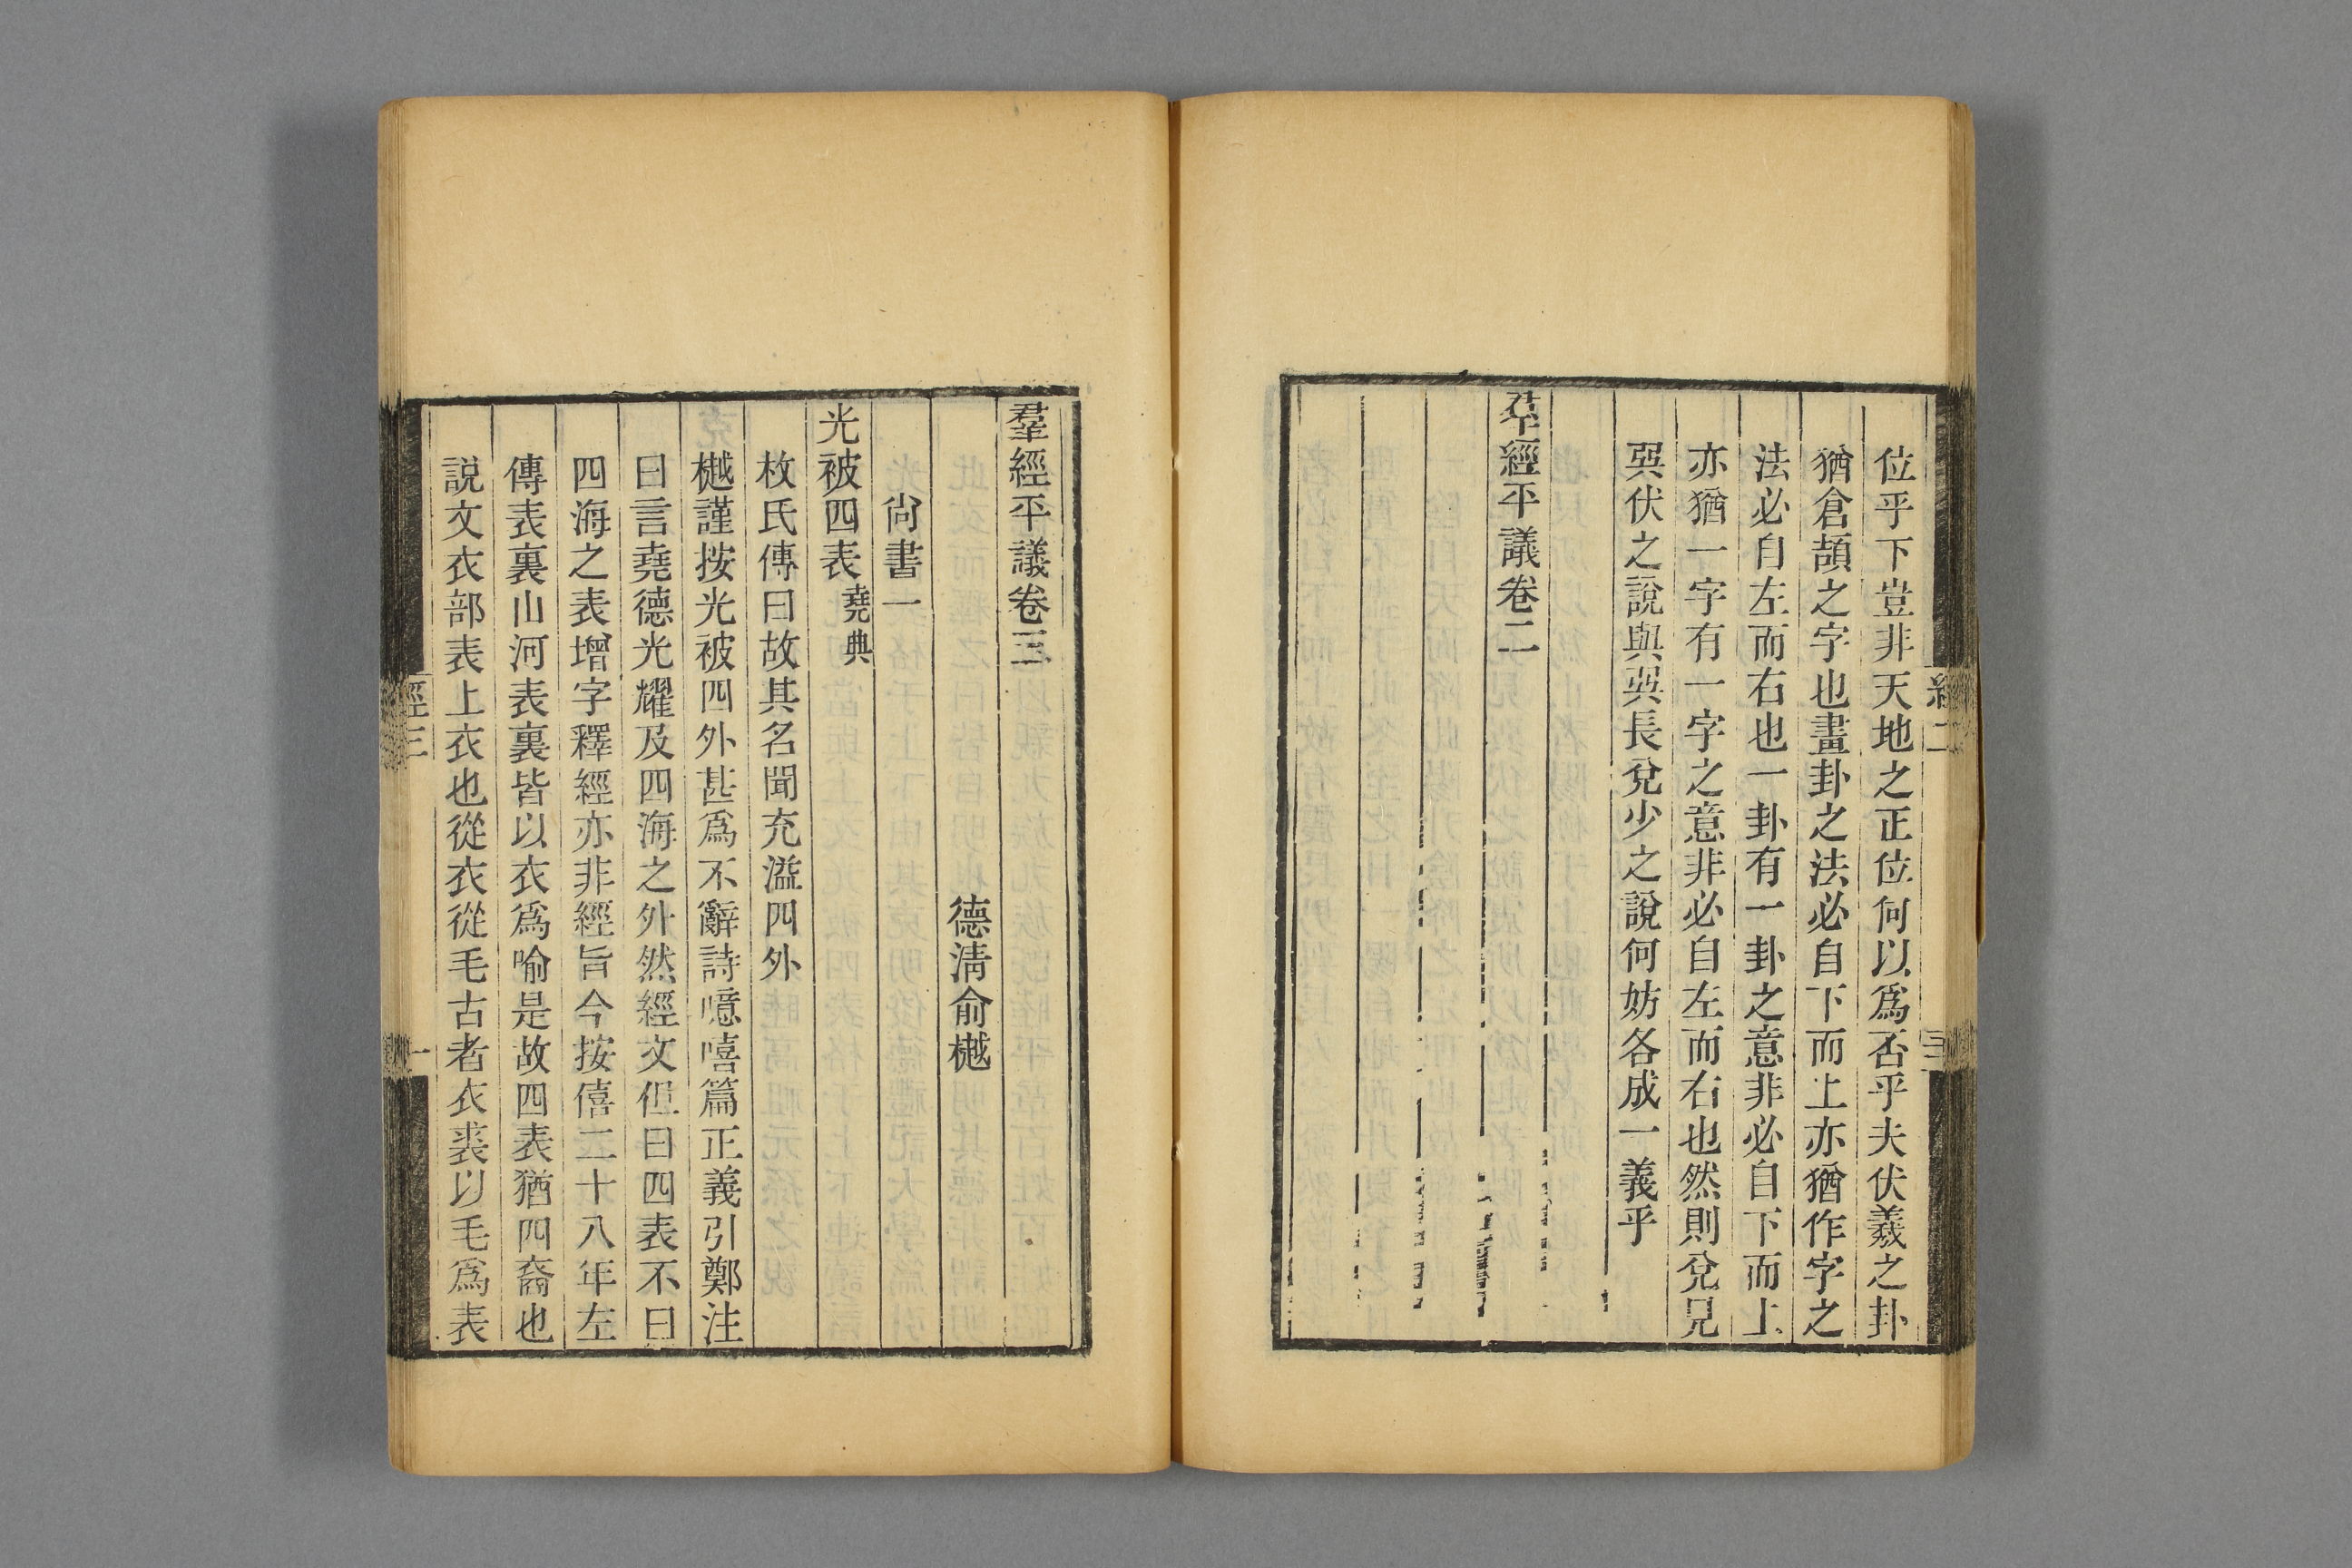 位乎下豈非天地之正位何以爲否乎夫伏羲之卦
猶倉頡之字也畫卦之法必自下而上亦猶作字之
法必自左而右也一卦有一卦之意非必自下而上
亦猶一字有一字之意非必自左而右也然則兌兄
巽伏之說與巽長兌少之說何妨各成一義乎
羣經平議卷二
羣經平議卷三
德淸俞樾
尙書一
光被四表堯典
枚氏傳曰故其名聞充溢四外
樾謹按光被四外甚爲不辭詩噫嘻篇正義引鄭注
曰言堯德光耀及四海之外然經文但曰四表不曰
四海之表增字釋經亦非經旨今按僖二十八年左
傳表裏山河表裏皆以衣爲喻是故四表猶四裔也
說文衣部表上衣也從衣從毛古者衣裘以毛爲表
經三
一